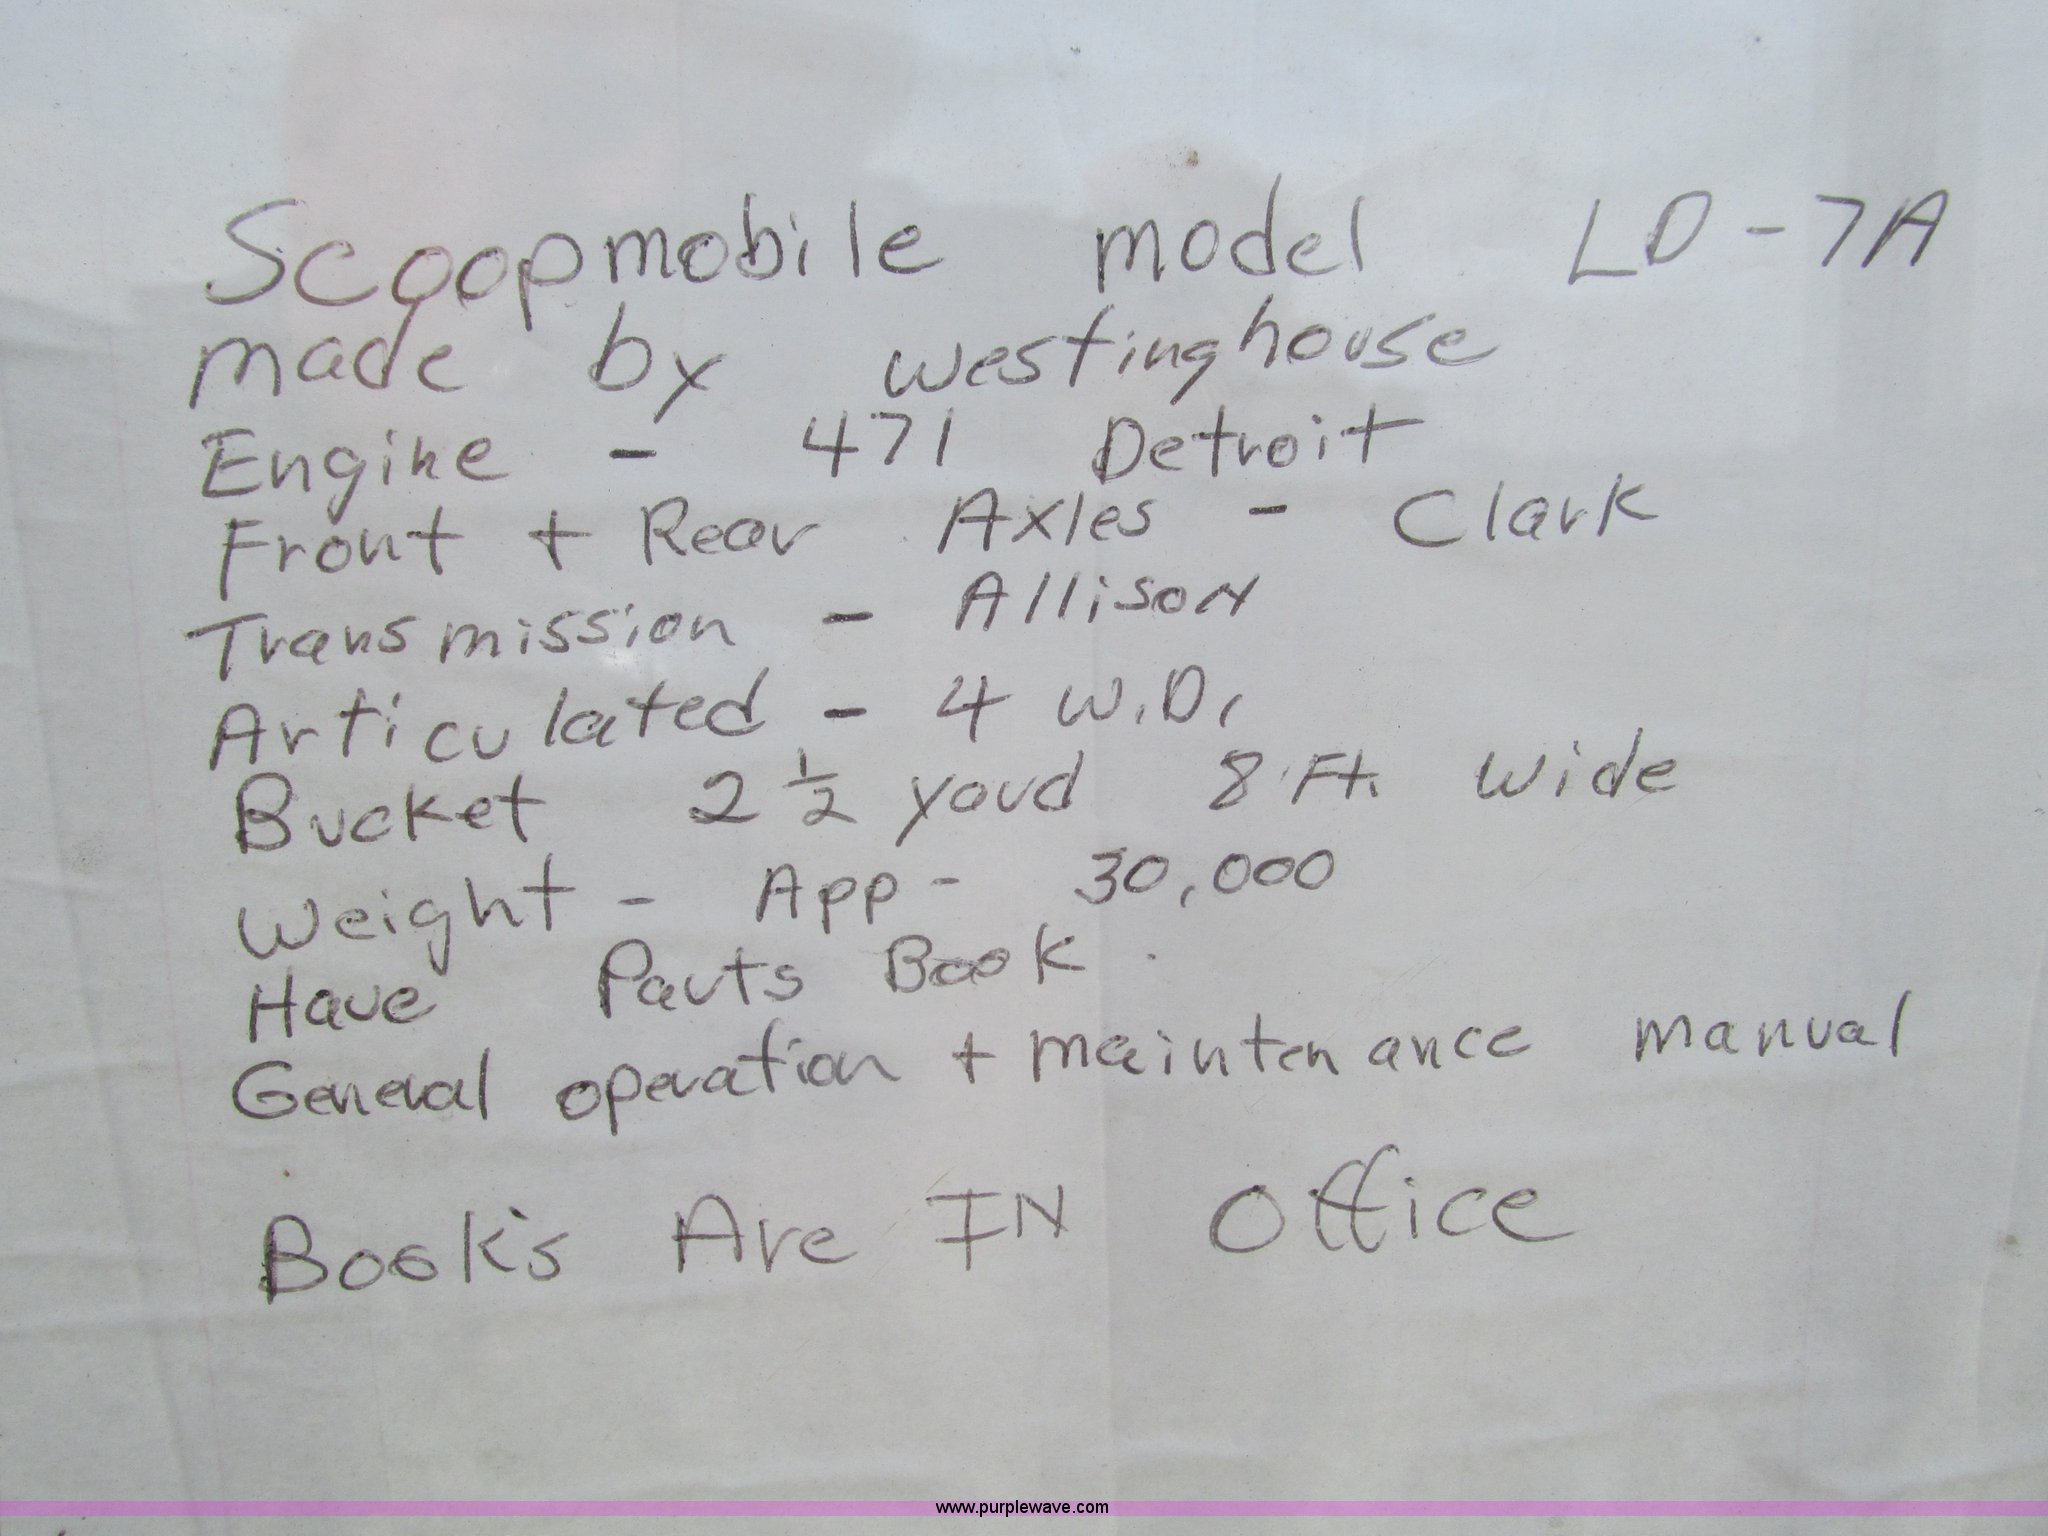 Scoopmobile model LD-7A
made by westinghouse
Engine - 471 Detroit
Front + Rear Axles - Clark
Transmission - Allison
Articulated - 4 W.D.
Bucket 2 1/2 yard 8 Ft. wide
Weight - App - 30,000
Have Parts Book.
General operation + maintenance manual
Book's Are IN Office
www.purplewave.com